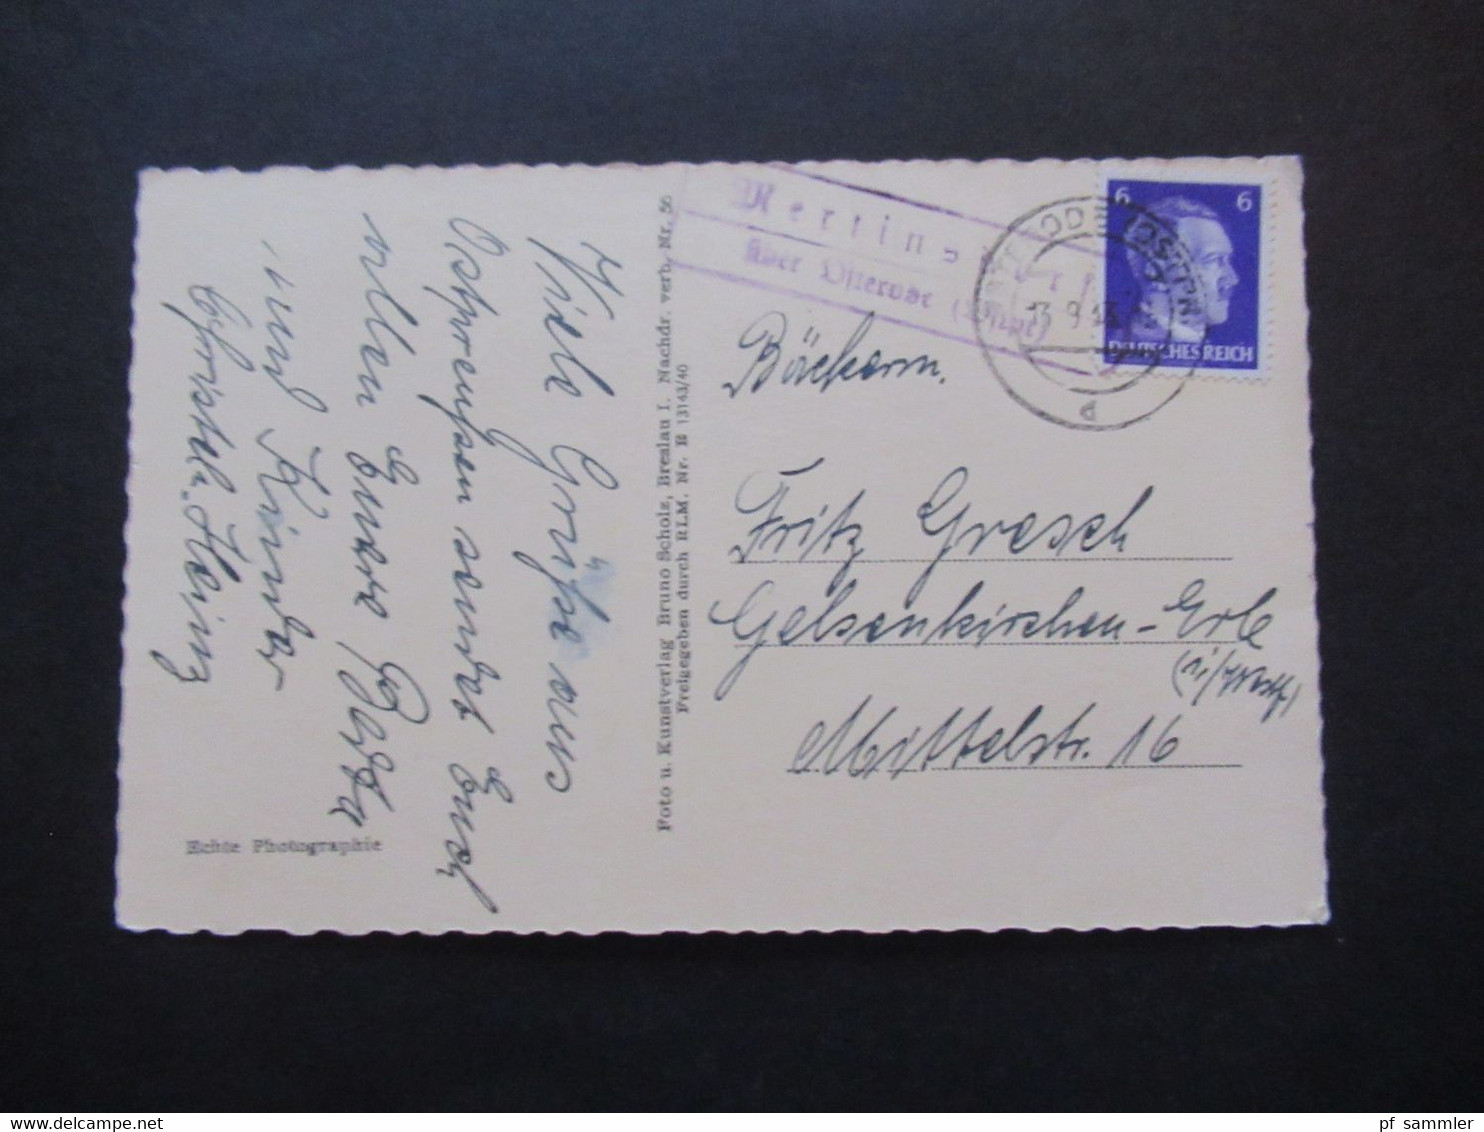 Viele Grüße aus
Ostpreußen sendet Euch
allen Euere Berta
und Kinder
Christel. Heinz
Echte Photographie
Foto u. Kunstverlag Bruno Scholz, Breslau I. Nachdr. verb. Nr. 56
Freigegeben durch RLM. Nr. B 13143/40
über Osterode (Ostpr)
13.9.43
6 6
DEUTSCHES REICH
Fritz Gresch
Gelsenkirchen-Erle
(Westf)
Mittelstr. 16
pf_sammler
delcampe.net